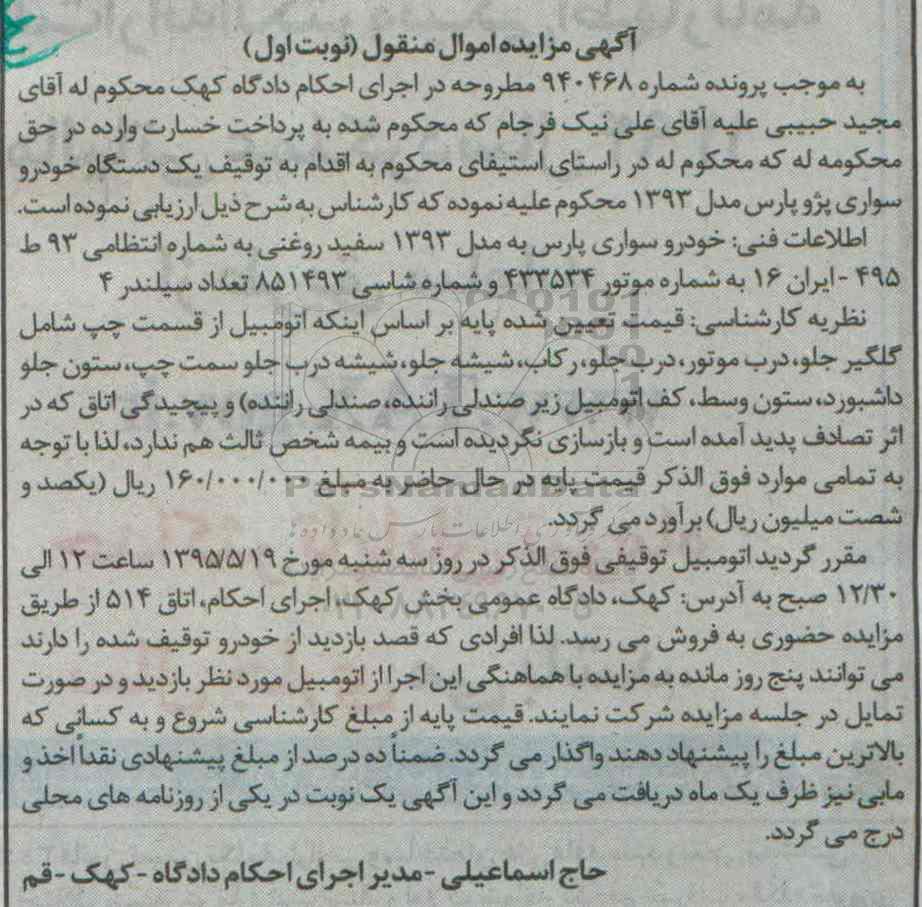 آگهی مزایده اموال منقول (نوبت اول)
به موجب پرونده شماره ۹۴۰۴۶۸ مطروحه در اجرای احکام دادگاه کهک محکوم له آقای
مجید حبیبی علیه آقای علی نیک فرجام که محکوم شده به پرداخت خسارت وارده در حق
محکومه له که محکوم له در راستای استیفای محکوم به اقدام به توقیف یک دستگاه خودرو
سواری پژو پارس مدل ۱۳۹۳ محکوم علیه نموده که کارشناس به شرح ذیل ارزیابی نموده است.
اطلاعات فنی: خودرو سواری پارس به مدل ۱۳۹۳ سفید روغنی به شماره انتظامی ۹۳ ط
۴۹۵ - ایران ۱۶ به شماره موتور ۴۳۳۵۳۴ و شماره شاسی ۸۵۱۴۹۳ تعداد سیلندر ۴
نظریه کارشناسی: قیمت تعیین شده پایه بر اساس اینکه اتومبیل از قسمت چپ شامل
گلگیر جلو، درب موتور، درب جلو، رکاب، شیشه جلو، شیشه درب جلو سمت چپ، ستون جلو
داشبورد، ستون وسط، کف اتومبیل زیر صندلی راننده، صندلی راننده) و پیچیدگی اتاق که در
اثر تصادف پدید آمده است و بازسازی نگردیده است و بیمه شخص ثالث هم ندارد، لذا با توجه
به تمامی موارد فوق الذکر قیمت پایه در حال حاضر به مبلغ ۱۶۰/۰۰۰/۰۰۰ ریال (یکصد و
ParsNamadData
شصت میلیون ریال) برآورد می گردد.
مقرر گردید اتومبیل توقیفی فوق الذکر در روز سه شنبه مورخ ۱۳۹۵/۵/۱۹ ساعت ۱۲ الی
۱۲/۳۰ صبح به آدرس: کهک، دادگاه عمومی بخش کهک، اجرای احکام، اتاق ۵۱۴ از طریق
مزایده حضوری به فروش می رسد. لذا افرادی که قصد بازدید از خودرو توقیف شده را دارند
می توانند پنج روز مانده به مزایده با هماهنگی این اجرا از اتومبیل مورد نظر بازدید و در صورت
تمایل در جلسه مزایده شرکت نمایند. قیمت پایه از مبلغ کارشناسی شروع و به کسانی که
بالاترین مبلغ را پیشنهاد دهند واگذار می گردد. ضمناً ده درصد از مبلغ پیشنهادی نقداً اخذ و
مابی نیز ظرف یک ماه دریافت می گردد و این آگهی یک نوبت در یکی از روزنامه های محلی
درج می گردد.
حاج اسماعیلی - مدیر اجرای احکام دادگاه - کهک - قم